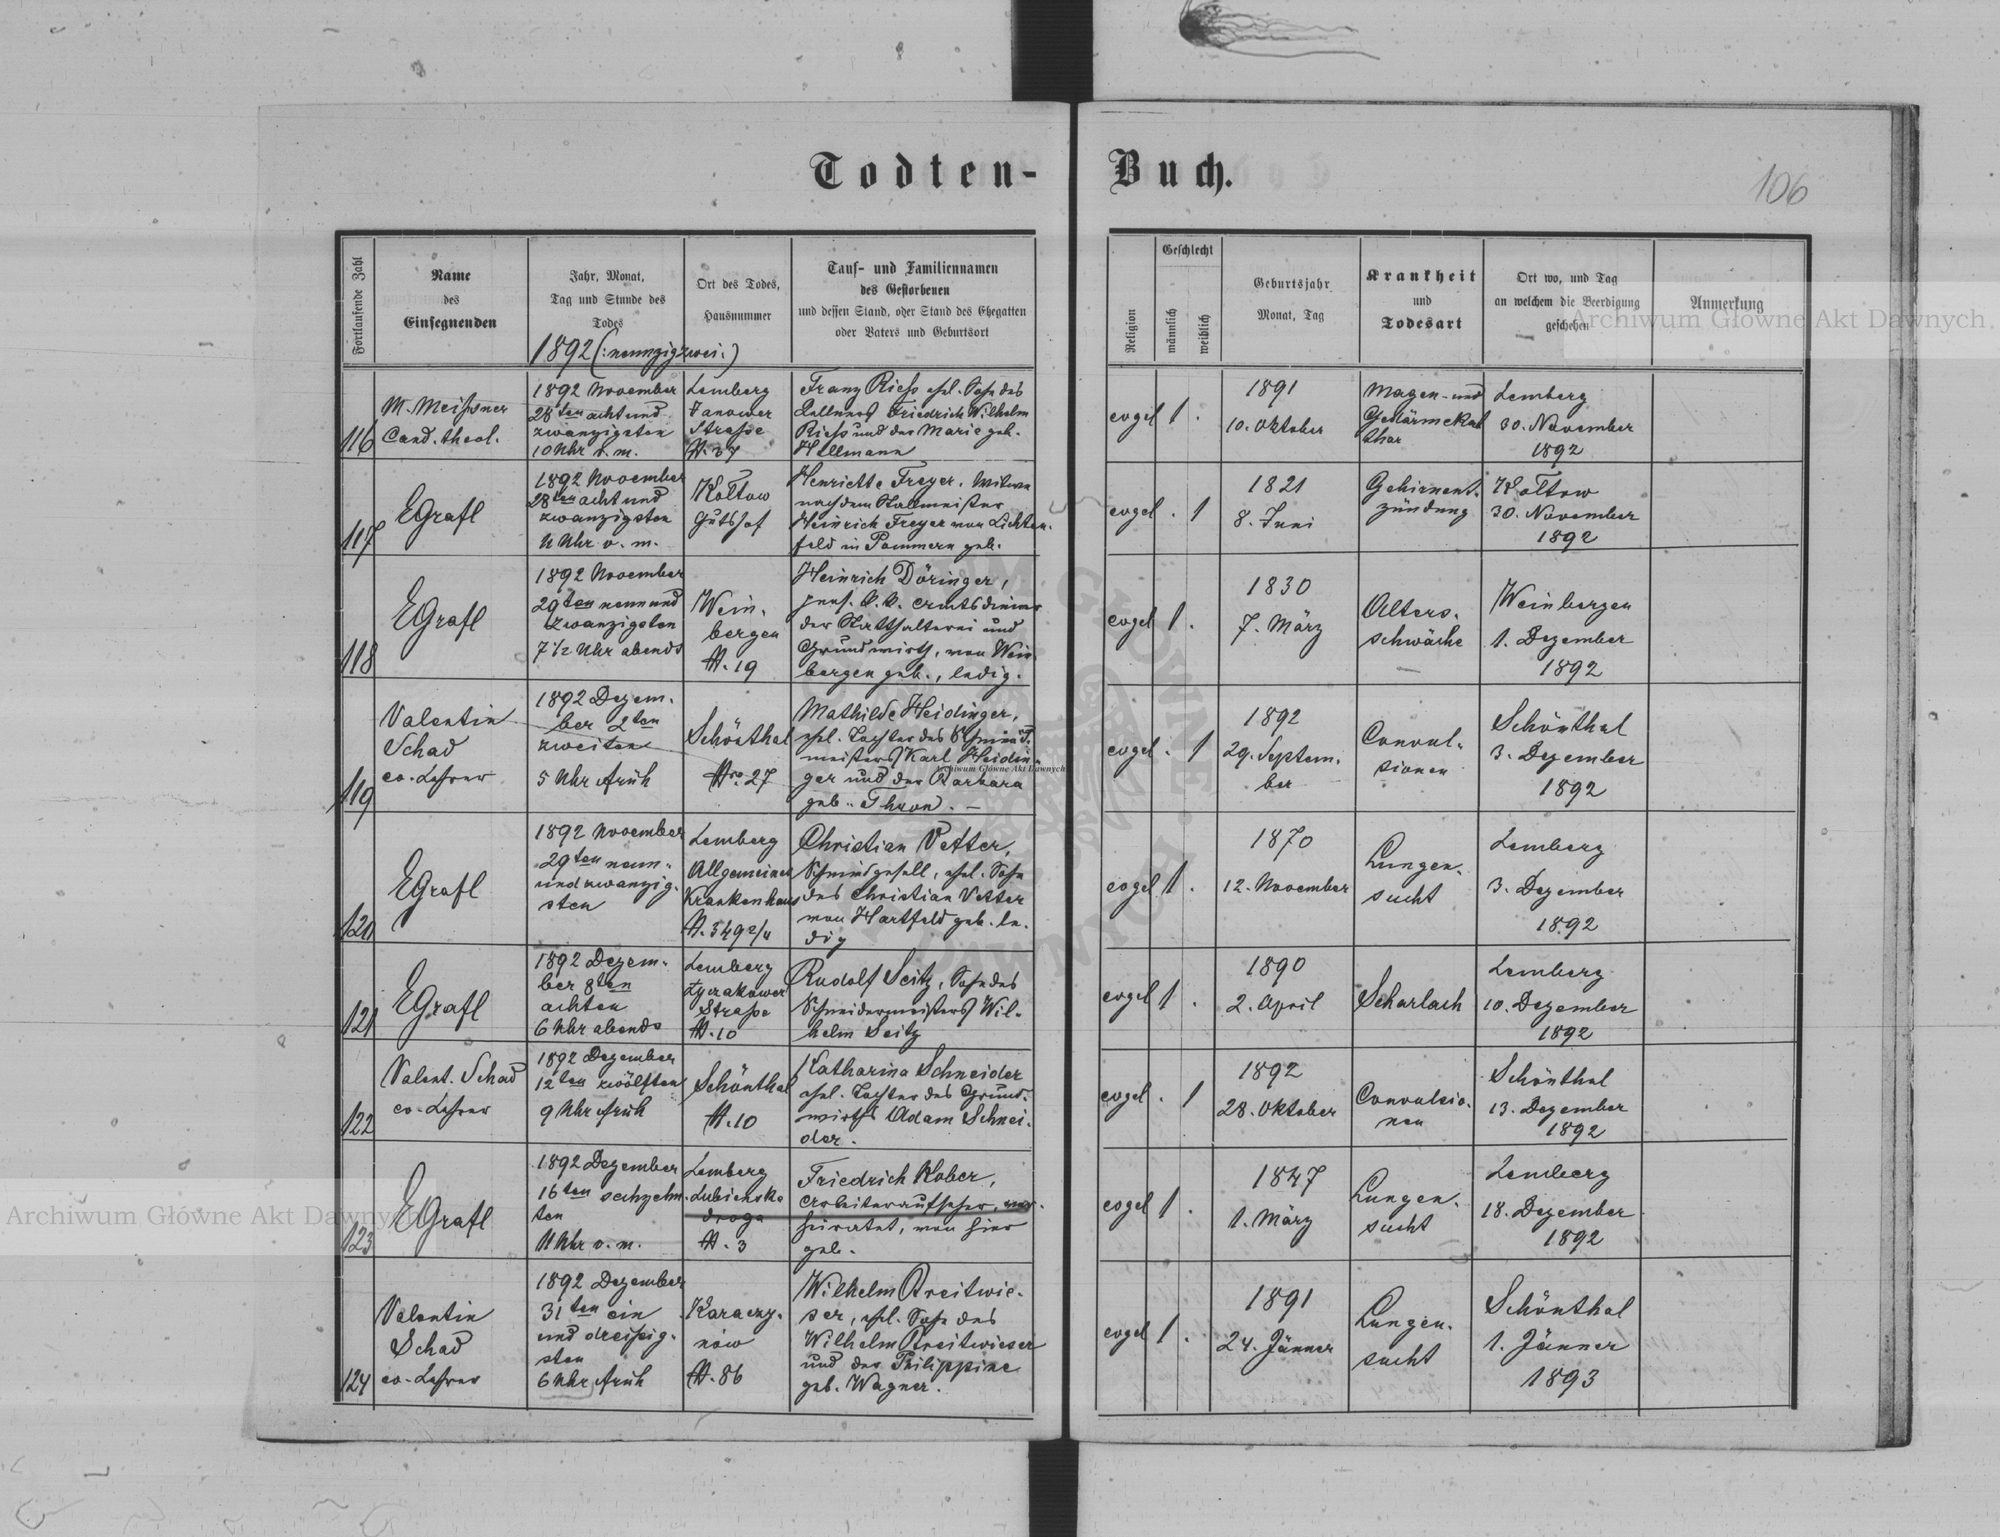 Todten-Buch.
106
Fortlaufende Zahl
Name
des
Einsegnenden
Jahr, Monat,
Tag und Stunde des
Todes
1892 (:neunzigzwei:)
Ort des Todes,
Hausnummer
Tauf- und Familiennamen
des Gestorbenen
und dessen Stand, oder Stand des Ehegatten
oder Vaters und Geburtsort
Religion
Geschlecht
männlich
weiblich
Geburtsjahr
Monat, Tag
Krankheit
und
Todesart
Ort wo, und Tag
an welchem die Beerdigung
geschehen
Anmerkung
116
M. Meißner
Cand. theol.
1892 November
28ten acht und
zwanzigsten
10 Uhr v. m.
Lemberg
Janower
Straße
N. 37
Franz Rieß ehel. Sohn des
Friedrich Wilhelm
Rieß und der Marie geb.
Hellmann
evgel
1 .
1891
10. Oktober
Magen- und
Gedärmekat
thar
Lemberg
30. November
1892
117
EGrafl
1892 November
28ten acht und
zwanzigsten
11 Uhr v. m.
Koltow
Gutshof
Henriette Freyer, Witwe
nach dem Stallmeister
Heinrich Freyer von Lichten-
feld in Pommern geb.
evgel
. 1
1821
8. Juni
Gehirnent-
zündung
Koltow
30. November
1892
118
EGrafl
1892 November
29ten neun und
zwanzigsten
7 1/2 Uhr abends
Wein-
bergen
N. 19
Heinrich Döringer,
pens. k. k. Amtsdiener
der Statthalterei und
Grundwirth, von Wein-
bergen geb., ledig.
evgel
1 .
1830
7. März
Alters-
schwäche
Weinbergen
1. Dezember
1892
119
Valentin
Schad
ev. Lehrer
1892 Dezem-
ber 2ten
zweiten
5 Uhr früh
Schönthal
Nro. 27
Mathilde Heidinger,
ehel. Tochter des Schmied-
meisters Karl Heidin-
ger und der Barbara
geb. Thron. –
evgel
. 1
1892
29. Septem-
ber
Convul-
sionen
Schönthal
3. Dezember
1892
120
EGrafl
1892 November
29ten neun-
und zwanzig-
sten
Lemberg
Allgemeines
Krankenhaus
N. 349 2/4
Christian Vetter,
Schmiedgesell, ehel. Sohn
des Christian Vetter
von Hartfeld geb. le-
dig
evgel
1 .
1870
12. November
Lungen-
sucht
Lemberg
3. Dezember
1892
121
EGrafl
1892 Dezem-
ber 8ten
achten
6 Uhr abends
Lemberg
Łyczakower
Straße
N. 10
Rudolf Seitz, Sohn des
Schneidermeisters Wil-
helm Seitz
evgel
1 .
1890
2. April
Scharlach
Lemberg
10. Dezember
1892
122
Valent. Schad
ev. Lehrer
1892 Dezember
12ten zwölften
9 Uhr früh
Schönthal
N. 10
Katharina Schneider
ehel. Tochter des Grund-
wirths Adam Schnei-
der.
evgel
. 1
1892
28. Oktober
Convulsio-
nen
Schönthal
13. Dezember
1892
123
EGrafl
1892 Dezember
16ten sechzehn-
ten
11 Uhr v. m.
Lemberg
Lubienska
droga
N. 3
Friedrich Kober,
Arbeiteraufseher, ver-
heiratet, von hier
geb.
evgel
1 .
1847
1. März
Lungen-
sucht
Lemberg
18. Dezember
1892
124
Valentin
Schad
ev. Lehrer
1892 Dezember
31ten ein
und dreißig-
sten
6 Uhr früh
Karaczy-
nów
N. 86
Wilhelm Breitwie-
ser, ehel. Sohn des
Wilhelm Breitwieser
und der Philippine
geb. Wagner.
evgel
1 .
1891
24. Jänner
Lungen-
sucht
Schönthal
1. Jänner
1893
Archiwum Główne Akt Dawnych
Archiwum Główne Akt Dawnych
Archiwum Główne Akt Dawnych